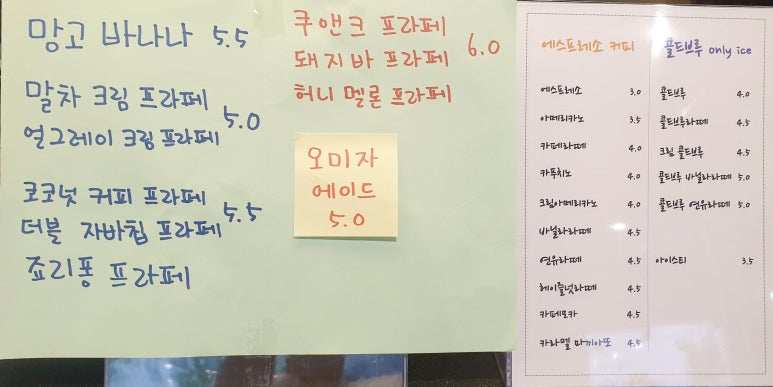 망고 바나나 5.5
말차 크림 프라페
얼그레이 크림 프라페
5.0
코코넛 커피 프라페
더블 자바칩 프라페
5.5
죠리퐁 프라페
쿠앤크 프라페
돼지바 프라페
6.0
허니 멜론 프라페
오미자
에이드
5.0
에스프레소 커피
에스프레소 3.0
아메리카노 3.5
카페라떼 4.0
카푸치노 4.0
크림아메리카노 4.0
바닐라라떼 4.5
연유라떼 4.5
헤이즐넛라떼 4.5
카페모카 4.5
카라멜 마끼아또 4.5
콜드브루 only ice
콜드브루 4.0
콜드브루라떼 4.5
크림 콜드브루 4.5
콜드브루 바닐라라떼 5.0
콜드브루 연유라떼 5.0
아이스티 3.5